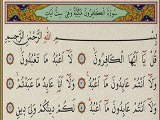 سُورَةُ الْكَافِرُونَ مَكِّيَّةٌ وَهِيَ سِتُّ آيَاتٍ
بِسْمِ اللهِ الرَّحْمٰنِ الرَّحِيمِ
قُلْ يَا أَيُّهَا الْكَافِرُونَ لَا أَعْبُدُ مَا تَعْبُدُونَ
وَلَا أَنْتُمْ عَابِدُونَ مَا أَعْبُدُ وَلَا أَنَا عَابِدٌ مَا عَبَدْتُمْ
وَلَا أَنْتُمْ عَابِدُونَ مَا أَعْبُدُ لَكُمْ دِينُكُمْ وَلِيَ دِينِ